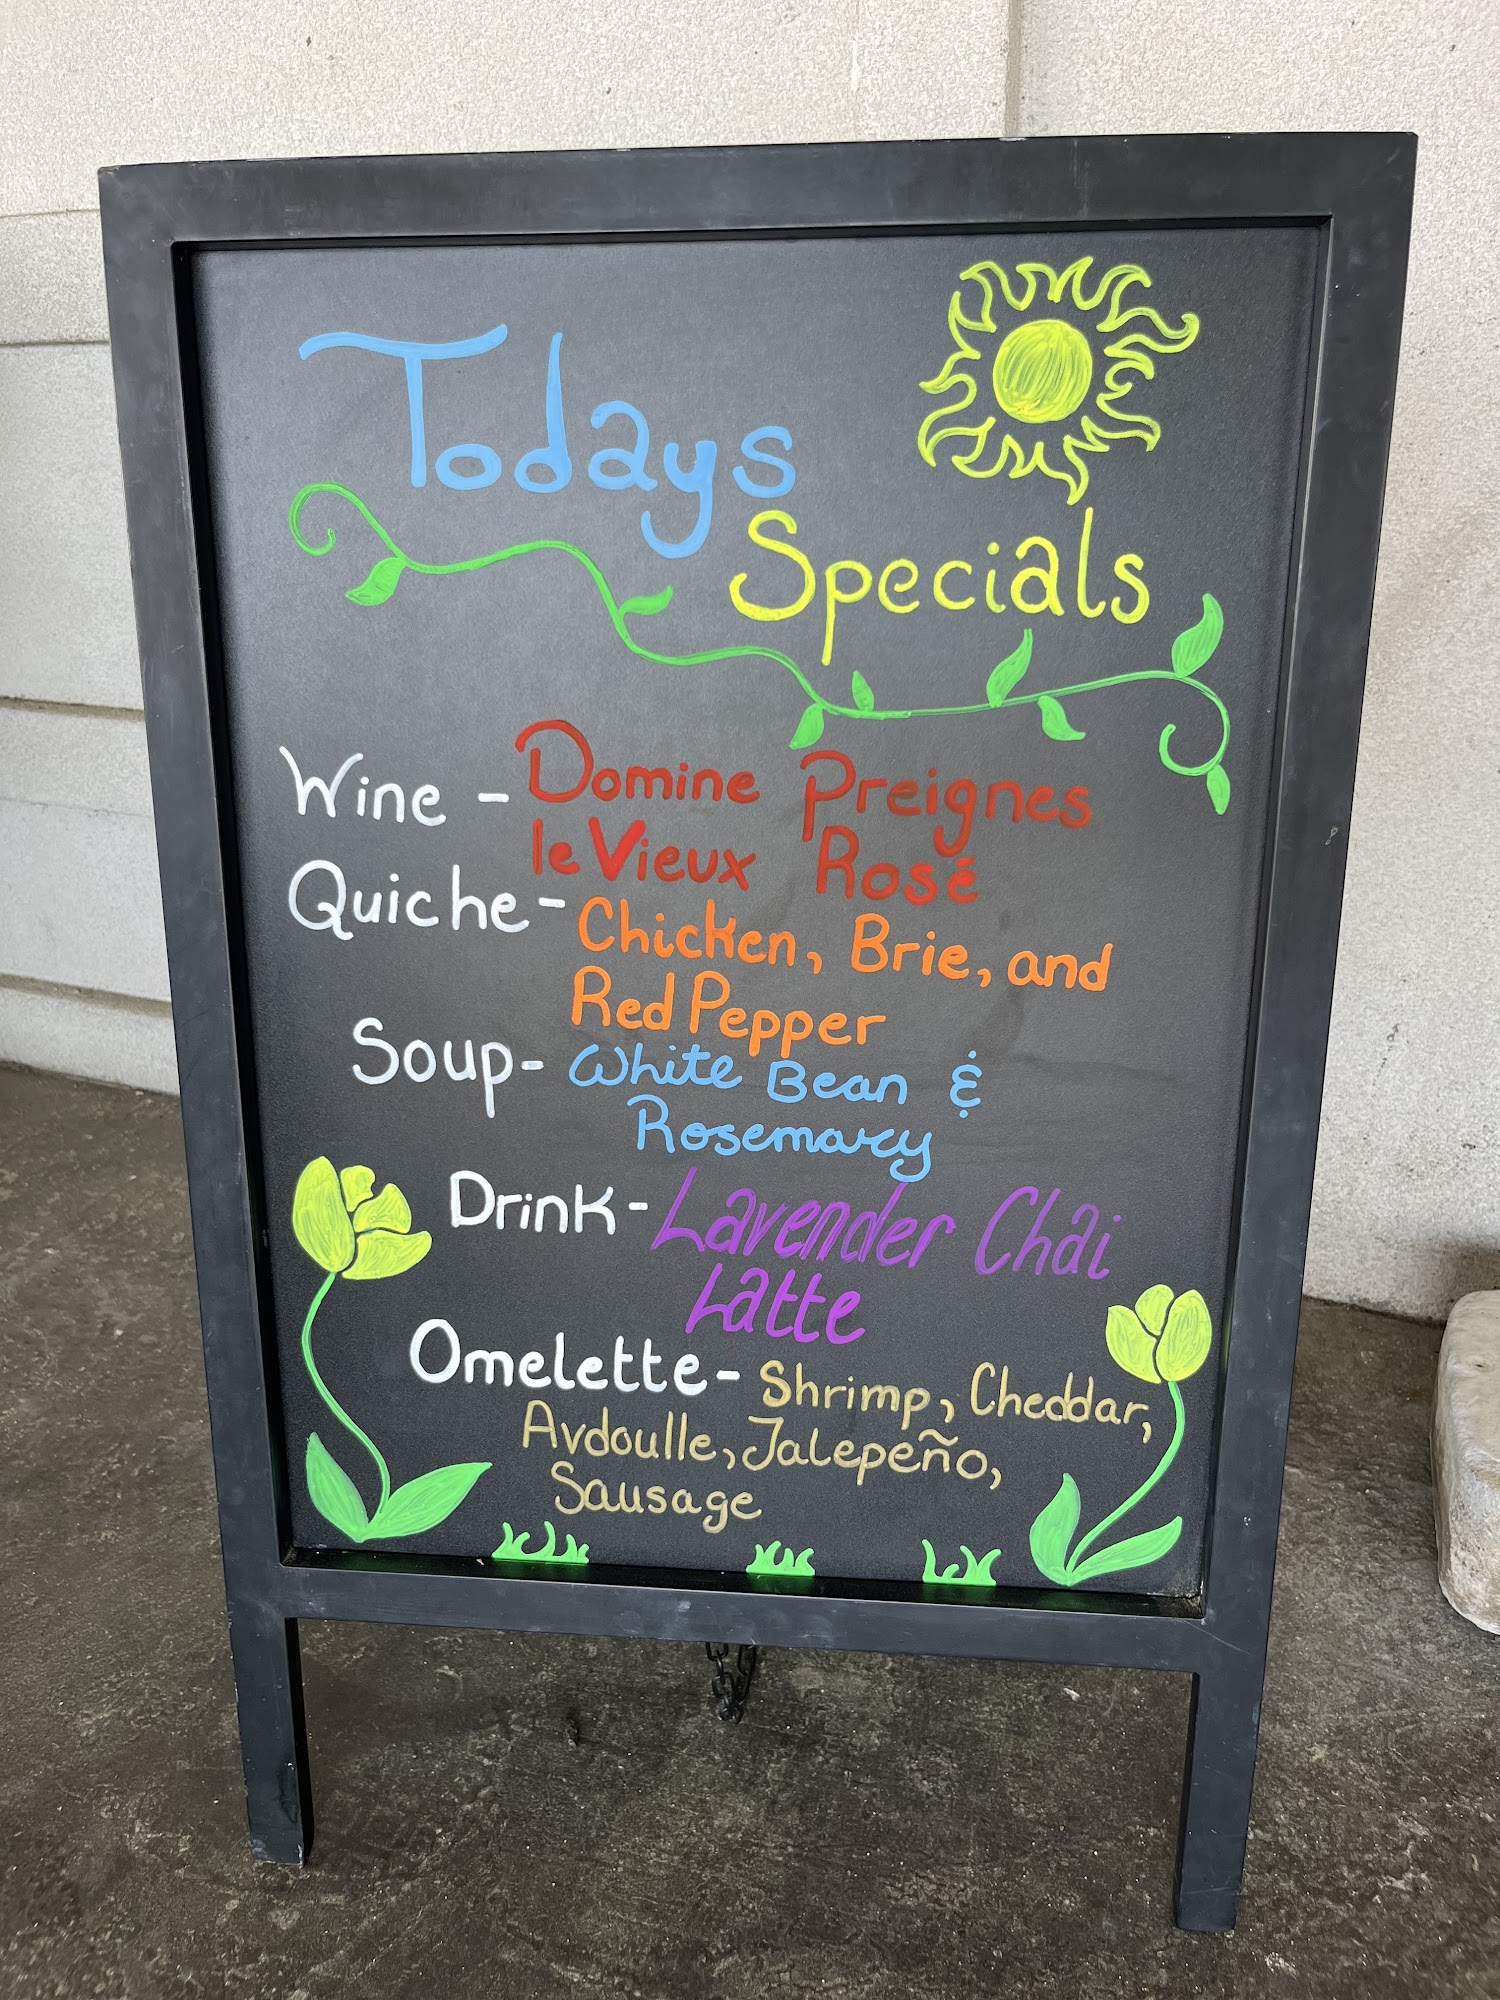 Todays
Specials
Wine - Domine Preignes
le Vieux Rosé
Quiche - Chicken, Brie, and
Red Pepper
Soup - White Bean &
Rosemary
Drink - Lavender Chai
Latte
Omelette - Shrimp, Cheddar,
Avdoulle, Jalepeño,
Sausage